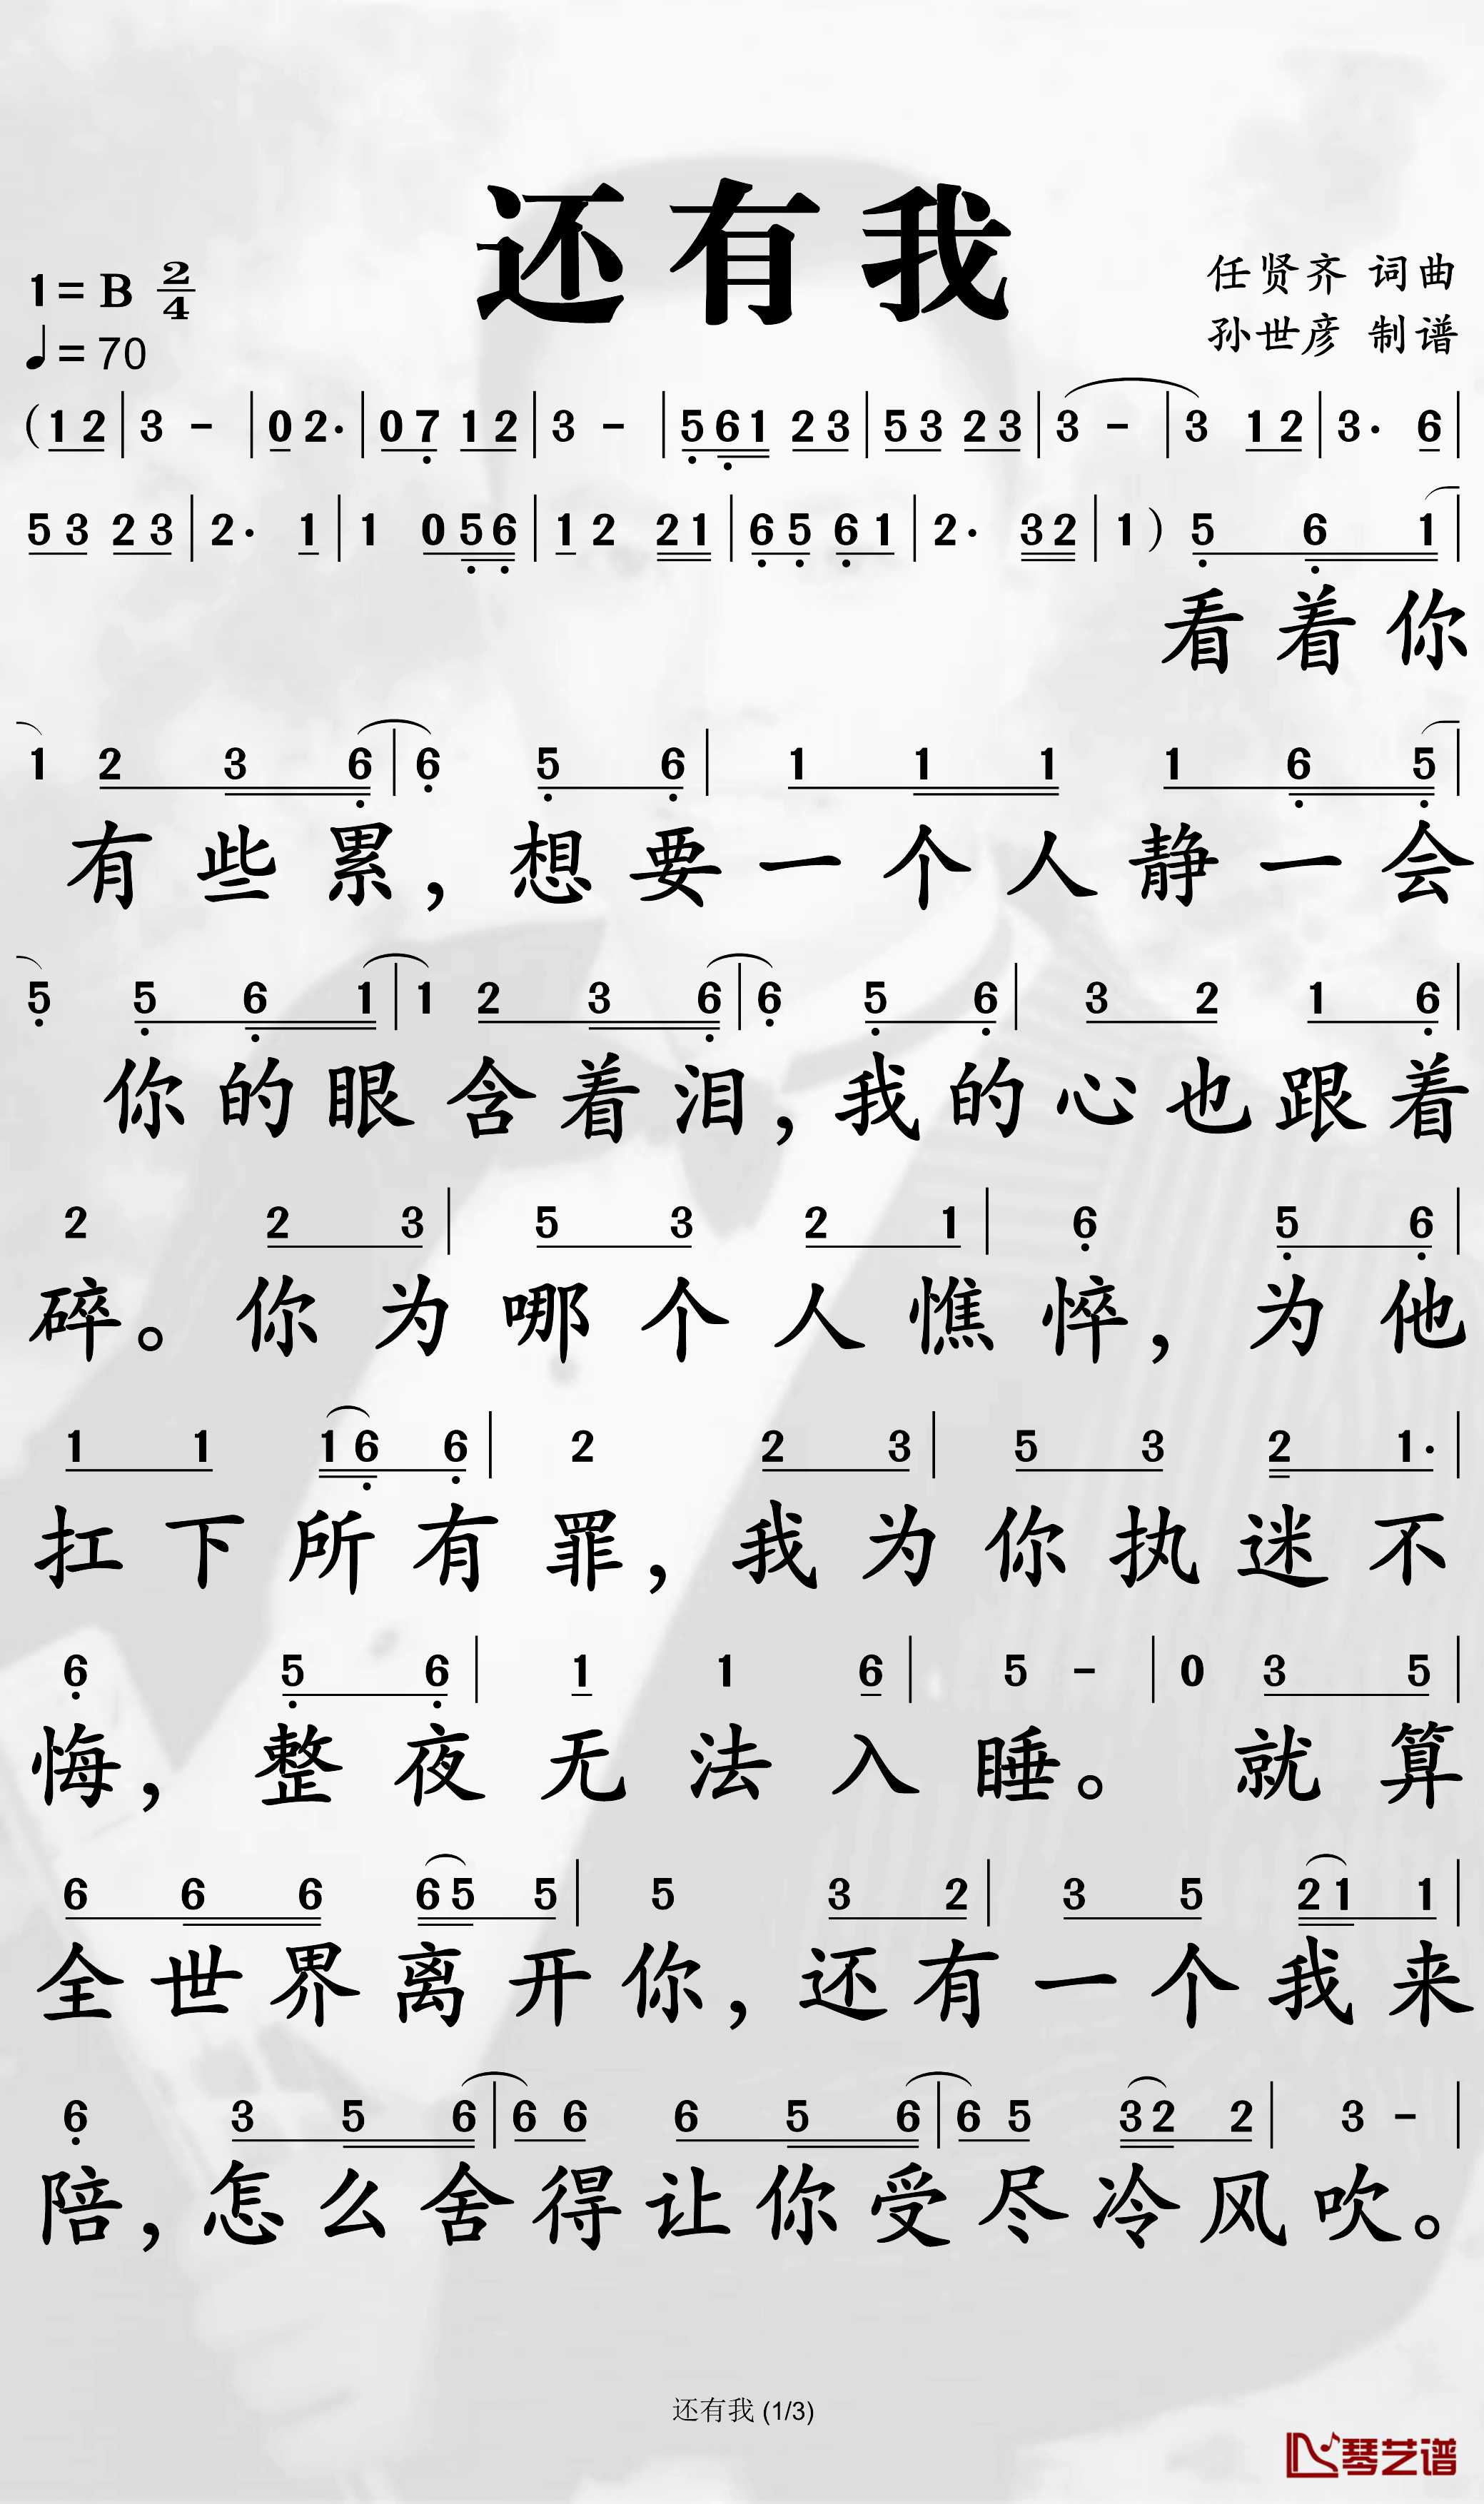 还有我
1=B 2/4
♩=70
任贤齐 词曲
孙世彦 制谱
(1 2 | 3 - | 0 2· | 0 7 1 2 | 3 - | 5 6 1 2 3 | 5 3 2 3 | 3 - | 3 1 2 | 3· 6 |
5 3 2 3 | 2· 1 | 1 0 5 6 | 1 2 2 1 | 6 5 6 1 | 2· 3 2 | 1) 5 6 1 |
看着你
1 2 3 6 | 6 5 6 | 1 1 1 1 6 5 |
有些累，想要一个人静一会
5 5 6 1 | 1 2 3 6 | 6 5 6 | 3 2 1 6 |
你的眼含着泪，我的心也跟着
2 2 3 | 5 3 2 1 | 6 5 6 |
碎。你为哪个人憔悴，为他
1 1 1 6 6 | 2 2 3 | 5 3 2 1· |
扛下所有罪，我为你执迷不
6 5 6 | 1 1 6 | 5 - | 0 3 5 |
悔，整夜无法入睡。就算
6 6 6 6 5 5 | 5 3 2 | 3 5 2 1 1 |
全世界离开你，还有一个我来
6 3 5 6 | 6 6 6 5 6 | 6 5 3 2 2 | 3 - |
陪，怎么舍得让你受尽冷风吹。
还有我 (1/3)
琴艺谱